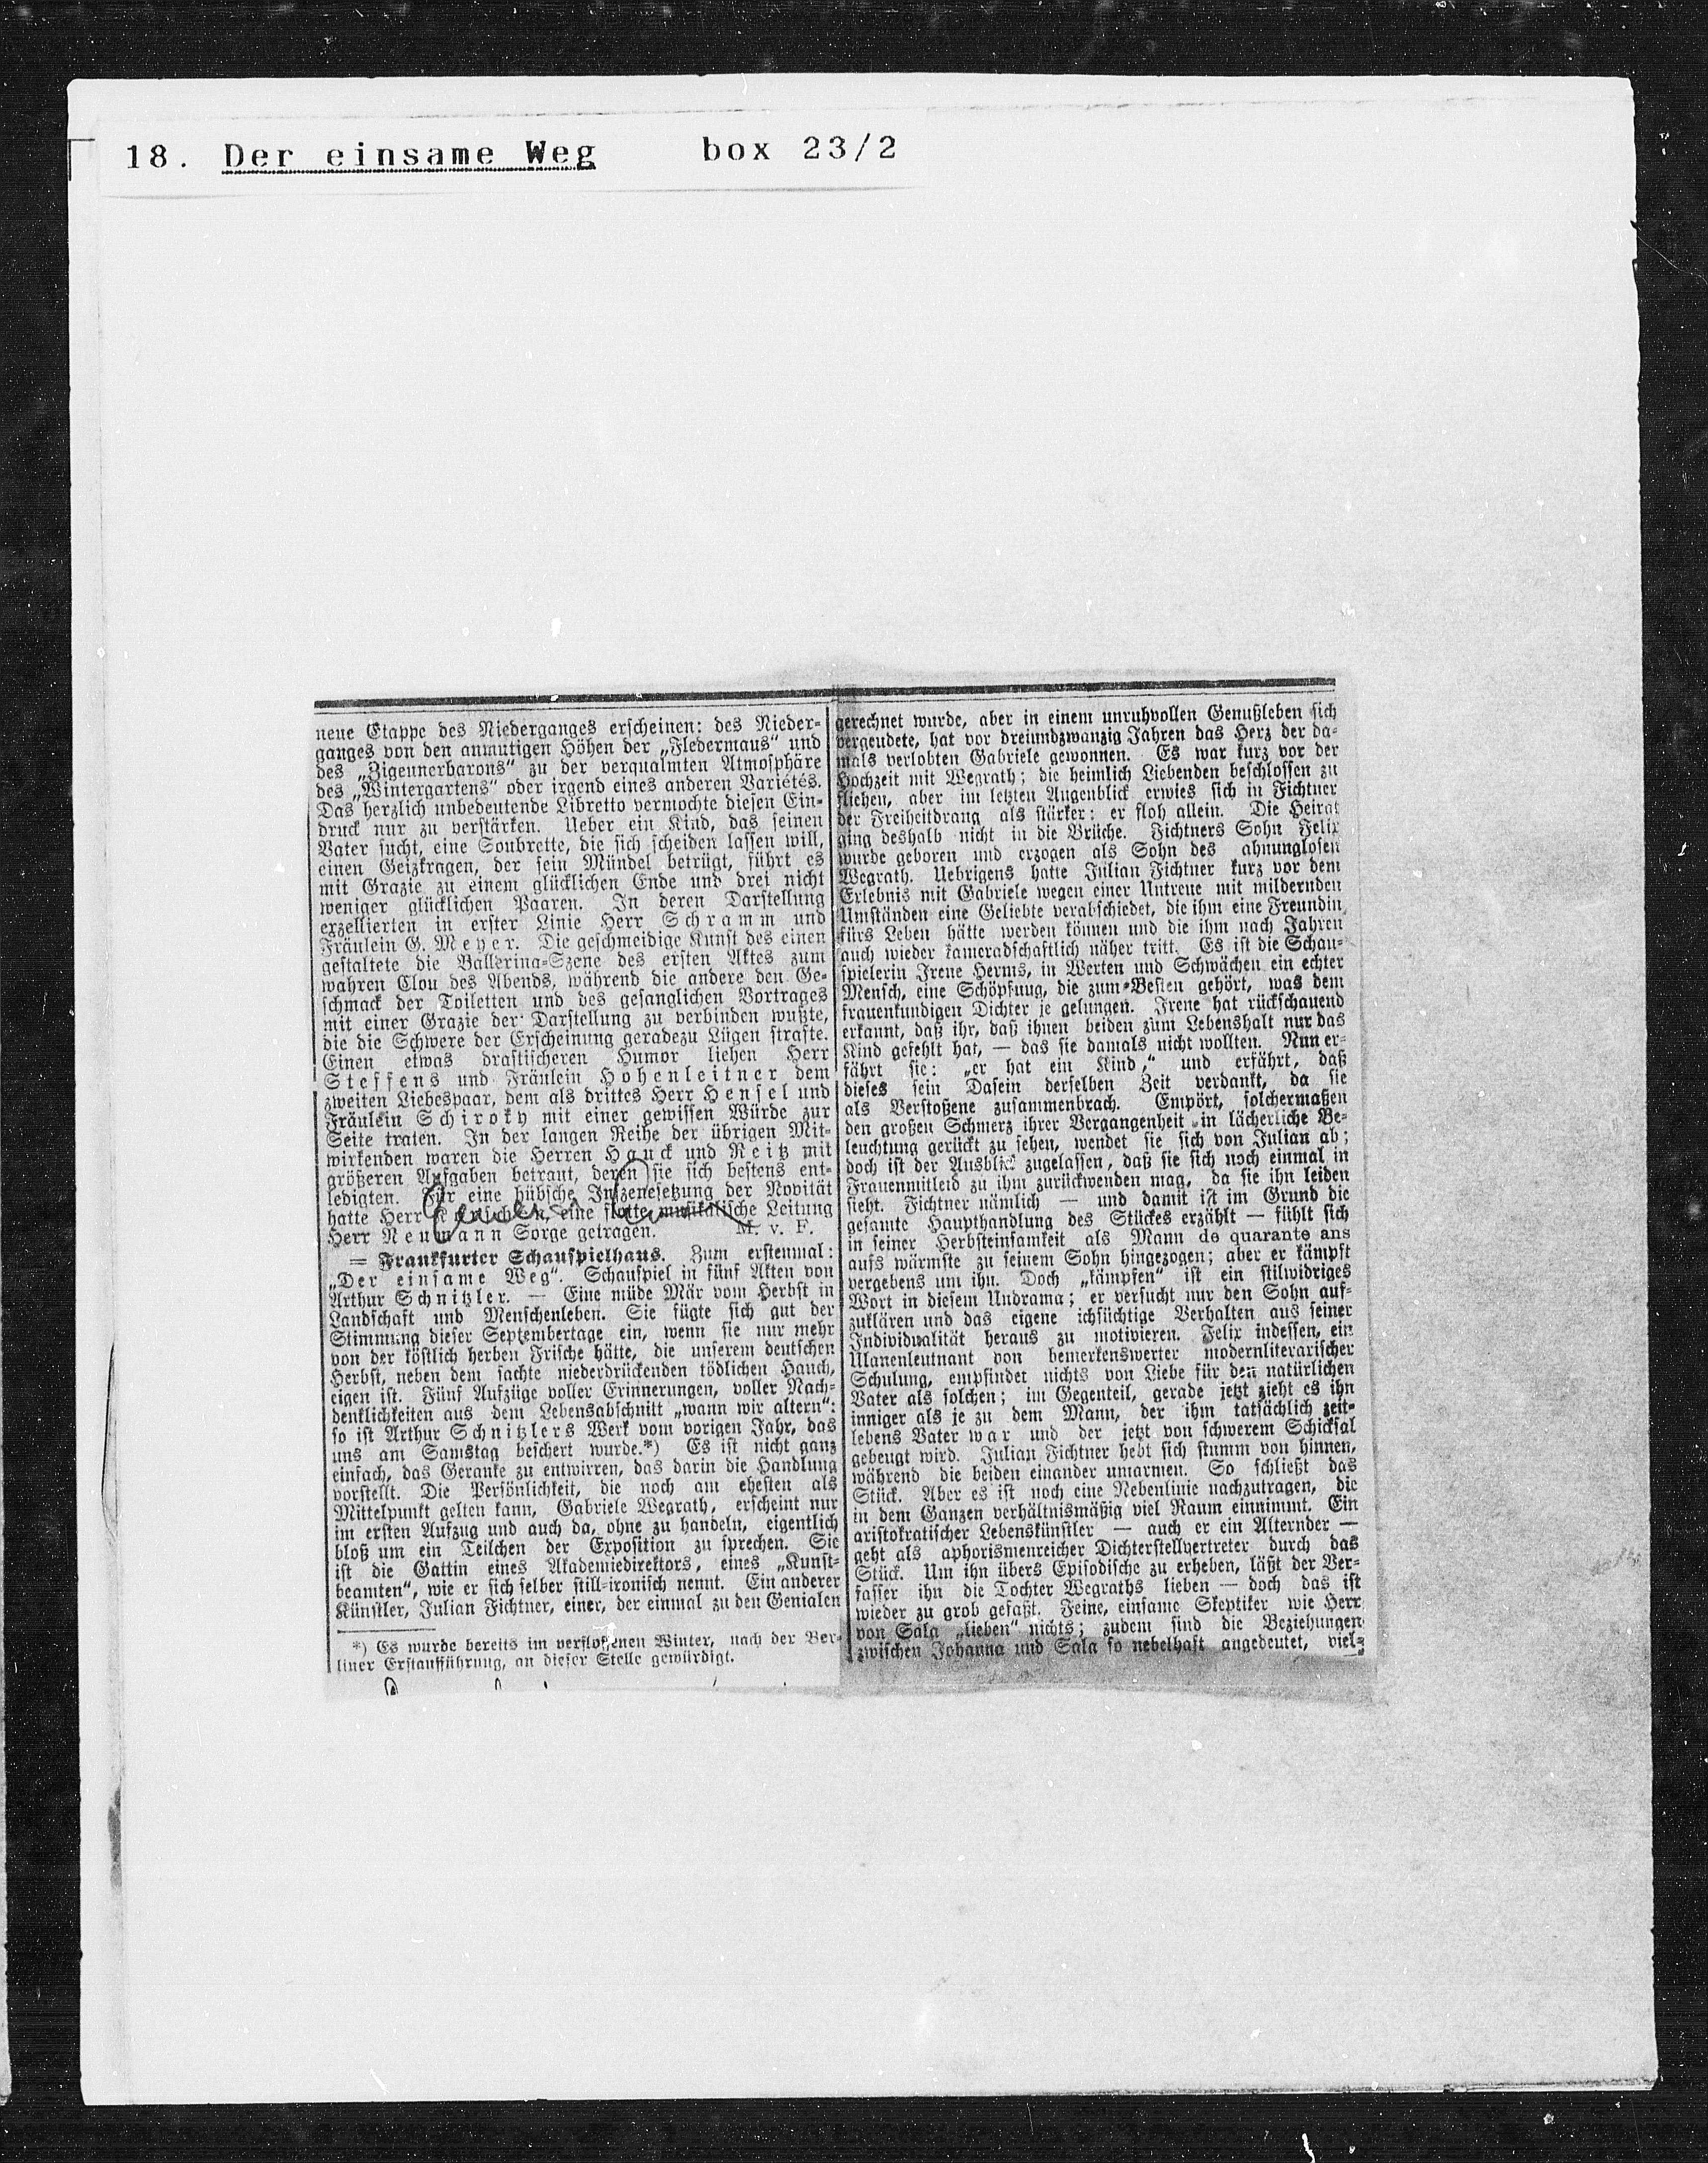 18. Der einsame Weg box 23/2
neue Etappe des Niederganges erscheinen: des Nieder-
ganges von den anmutigen Höhen der „Fledermaus“ und
des „Zigeunerbarons“ zu der verqualmten Atmosphäre
des „Wintergartens“ oder irgend eines anderen Variétés.
Das herzlich unbedeutende Libretto vermochte diesen Ein-
druck nur zu verstärken. Ueber ein Kind, das seinen
Vater sucht, eine Soubrette, die sich scheiden lassen will,
einen Geizkragen, der sein Mündel betrügt, führt es
mit Grazie zu einem glücklichen Ende und drei nicht
weniger glücklichen Paaren. In deren Darstellung
exzellierten in erster Linie Herr Schramm und
Fräulein G. Meyer. Die geschmeidige Kunst des einen
gestaltete die Ballerina-Szene des ersten Aktes zum
wahren Clou des Abends, während die andere den Ge-
schmack der Toiletten und des gesanglichen Vortrages
mit einer Grazie der Darstellung zu verbinden wußte,
die die Schwere der Erscheinung geradezu Lügen strafte.
Einen etwas drastischeren Humor liehen Herr
Steffens und Fräulein Hohenleitner dem
zweiten Liebespaar, dem als drittes Herr Hensel und
Fräulein Schiroky mit einer gewissen Würde zur
Seite traten. In der langen Reihe der übrigen Mit-
wirkenden waren die Herren Hauck und Reitz mit
größeren Aufgaben betraut, deren sie sich bestens ent-
ledigten. Für eine hübsche Inszenesetzung der Novität
hatte Herr eine flotte musikalische Leitung
Herr Neumann Sorge getragen. M. v. F.
= Frankfurter Schauspielhaus. Zum erstenmal:
„Der einsame Weg“. Schauspiel in fünf Akten von
Arthur Schnitzler. — Eine müde Mär vom Herbst in
Landschaft und Menschenleben. Sie fügte sich gut der
Stimmung dieser Septembertage ein, wenn sie nur mehr
von der köstlich herben Frische hätte, die unserem deutschen
Herbst, neben dem sachte niederdrückenden tödlichen Hauch,
eigen ist. Fünf Aufzüge voller Erinnerungen, voller Nach-
denklichkeiten aus dem Lebensabschnitt „wann wir altern“:
so ist Arthur Schnitzlers Werk vom vorigen Jahr, das
uns am Samstag beschert wurde.*) Es ist nicht ganz
einfach, das Geranke zu entwirren, das darin die Handlung
vorstellt. Die Persönlichkeit, die noch am ehesten als
Mittelpunkt gelten kann, Gabriele Wegrath, erscheint nur
im ersten Aufzug und auch da, ohne zu handeln, eigentlich
bloß um ein Teilchen der Exposition zu sprechen. Sie
ist die Gattin eines Akademiedirektors, eines „Kunst-
beamten“, wie er sich selber still-ironisch nennt. Ein anderer
Künstler, Julian Fichtner, einer, der einmal zu den Genialen
*) Es wurde bereits im verflossenen Winter, nach der Ber-
liner Erstaufführung, an dieser Stelle gewürdigt.
gerechnet wurde, aber in einem unruhvollen Genußleben sich
vergeudete, hat vor dreiundzwanzig Jahren das Herz der da-
mals verlobten Gabriele gewonnen. Es war kurz vor der
Hochzeit mit Wegrath; die heimlich Liebenden beschlossen zu
fliehen, aber im letzten Augenblick erwies sich in Fichtner
der Freiheitdrang als stärker: er floh allein. Die Heirat
ging deshalb nicht in die Brüche. Fichtners Sohn Felix
wurde geboren und erzogen als Sohn des ahnunglosen
Wegrath. Uebrigens hatte Julian Fichtner kurz vor dem
Erlebnis mit Gabriele wegen einer Untreue mit mildernden
Umständen eine Geliebte verabschiedet, die ihm eine Freundin
fürs Leben hätte werden können und die ihm nach Jahren
auch wieder kameradschaftlich näher tritt. Es ist die Schau-
spielerin Irene Herms, in Werten und Schwächen ein echter
Mensch, eine Schöpfung, die zum Besten gehört, was dem
frauenkundigen Dichter je gelungen. Irene hat rückschauend
erkannt, daß ihr, daß ihnen beiden zum Lebenshalt nur das
Kind gefehlt hat, — das sie damals nicht wollten. Nun er-
fährt sie: „er hat ein Kind,“ und erfährt, daß
dieses sein Dasein derselben Zeit verdankt, da sie
als Verstoßene zusammenbrach. Empört, solchermaßen
den großen Schmerz ihrer Vergangenheit in lächerliche Be-
leuchtung gerückt zu sehen, wendet sie sich von Julian ab;
doch ist der Ausblick zugelassen, daß sie sich noch einmal in
Frauenmitleid zu ihm zurückwenden mag, da sie ihn leiden
sieht. Fichtner nämlich — und damit ist im Grund die
gesamte Haupthandlung des Stückes erzählt — fühlt sich
in seiner Herbsteinsamkeit als Mann de quarante ans
aufs wärmste zu seinem Sohn hingezogen; aber er kämpft
vergebens um ihn. Doch „kämpfen“ ist ein stilwidriges
Wort in diesem Undrama; er versucht nur den Sohn auf-
zuklären und das eigene ichsüchtige Verhalten aus seiner
Individualität heraus zu motivieren. Felix indessen, ein
Ulanenleutnant von bemerkenswerter modernliterarischer
Schulung, empfindet nichts von Liebe für den natürlichen
Vater als solchen; im Gegenteil, gerade jetzt zieht es ihn
inniger als je zu dem Mann, der ihm tatsächlich zeit-
lebens Vater war und der jetzt von schwerem Schicksal
gebeugt wird. Julian Fichtner hebt sich stumm von hinnen,
während die beiden einander umarmen. So schließt das
Stück. Aber es ist noch eine Nebenlinie nachzutragen, die
in dem Ganzen verhältnismäßig viel Raum einnimmt. Ein
aristokratischer Lebenskünstler — auch er ein Alternder —
geht als aphorismenreicher Dichterstellvertreter durch das
Stück. Um ihn übers Episodische zu erheben, läßt der Ver-
fasser ihn die Tochter Wegraths lieben — doch das ist
wieder zu grob gefaßt. Feine, einsame Skeptiker wie Herr
von Sala „lieben“ nichts; zudem sind die Beziehungen
zwischen Johanna und Sala so nebelhaft angedeutet, viel-